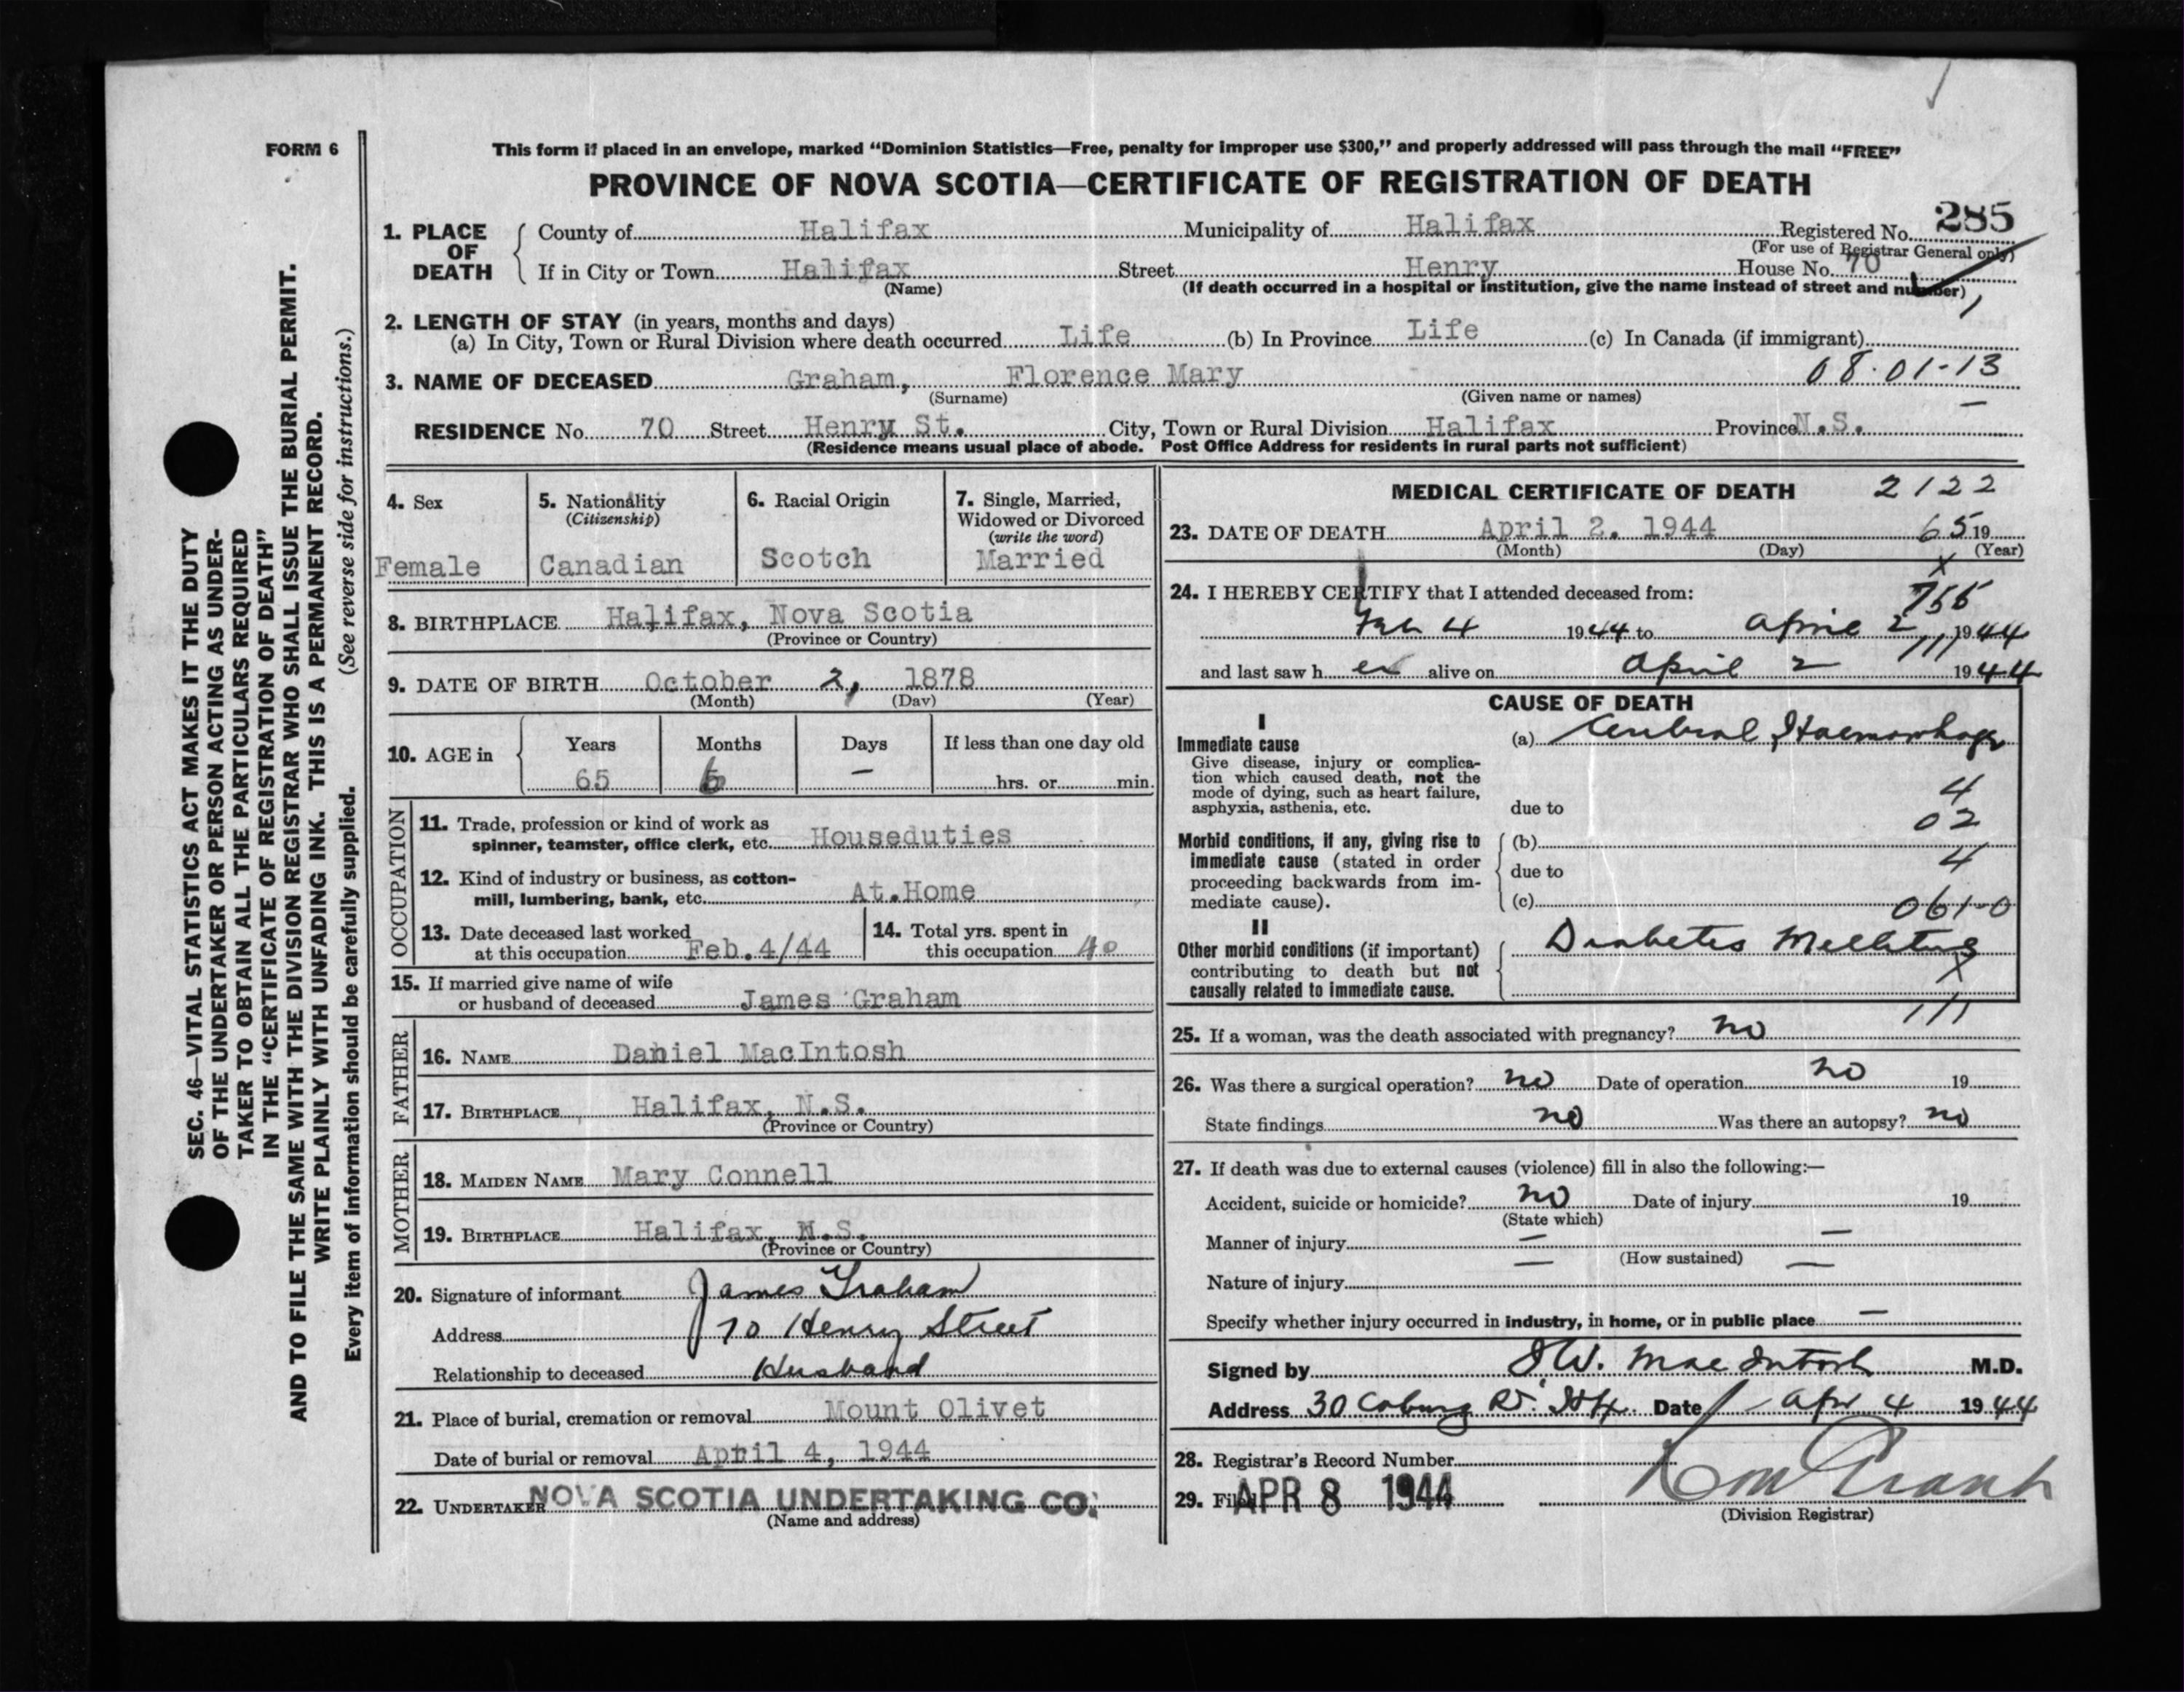 FORM 6
This form if placed in an envelope, marked "Dominion Statistics—Free, penalty for improper use $300," and properly addressed will pass through the mail "FREE"
PROVINCE OF NOVA SCOTIA—CERTIFICATE OF REGISTRATION OF DEATH
SEC. 46—VITAL STATISTICS ACT MAKES IT THE DUTY
OF THE UNDERTAKER OR PERSON ACTING AS UNDER-
TAKER TO OBTAIN ALL THE PARTICULARS REQUIRED
IN THE "CERTIFICATE OF REGISTRATION OF DEATH"
AND TO FILE THE SAME WITH THE DIVISION REGISTRAR WHO SHALL ISSUE THE BURIAL PERMIT.
WRITE PLAINLY WITH UNFADING INK. THIS IS A PERMANENT RECORD.
Every item of information should be carefully supplied. (See reverse side for instructions.)
1. PLACE OF DEATH County of Halifax Municipality of Halifax Registered No. 285
(For use of Registrar General only)
If in City or Town Halifax Street Henry House No. 70
(Name) (If death occurred in a hospital or institution, give the name instead of street and number)
2. LENGTH OF STAY (in years, months and days)
(a) In City, Town or Rural Division where death occurred Life (b) In Province Life (c) In Canada (if immigrant)
08-01-13
3. NAME OF DECEASED Graham, Florence Mary
(Surname) (Given name or names)
RESIDENCE No. 70 Street Henry St. City, Town or Rural Division Halifax Province N.S.
(Residence means usual place of abode. Post Office Address for residents in rural parts not sufficient)
4. Sex
Female
5. Nationality
(Citizenship)
Canadian
6. Racial Origin
Scotch
7. Single, Married,
Widowed or Divorced
(write the word)
Married
8. BIRTHPLACE Halifax, Nova Scotia
(Province or Country)
9. DATE OF BIRTH October 2, 1878
(Month) (Day) (Year)
10. AGE in
Years Months Days If less than one day old
65 6 — hrs. or min.
OCCUPATION
11. Trade, profession or kind of work as
spinner, teamster, office clerk, etc. Houseduties
12. Kind of industry or business, as cotton-
mill, lumbering, bank, etc. At.Home
13. Date deceased last worked
at this occupation Feb.4/44
14. Total yrs. spent in
this occupation 40
15. If married give name of wife
or husband of deceased James Graham
FATHER
16. NAME Daniel MacIntosh
17. BIRTHPLACE Halifax, N.S.
(Province or Country)
MOTHER
18. MAIDEN NAME Mary Connell
19. BIRTHPLACE Halifax, N.S.
(Province or Country)
20. Signature of informant James Graham
Address 70 Henry Street
Relationship to deceased Husband
21. Place of burial, cremation or removal Mount Olivet
Date of burial or removal April 4, 1944
22. UNDERTAKER NOVA SCOTIA UNDERTAKING CO.
(Name and address)
MEDICAL CERTIFICATE OF DEATH 2122
23. DATE OF DEATH April 2. 1944 65 19
(Month) (Day) (Year)
X
24. I HEREBY CERTIFY that I attended deceased from:
Feb 4 1944 to April 2 1944
111
and last saw her alive on April 2 1944
CAUSE OF DEATH
I
Immediate cause
Give disease, injury or complica-
tion which caused death, not the
mode of dying, such as heart failure,
asphyxia, asthenia, etc.
(a) Cerebral Haemorrhage
4
due to
02
Morbid conditions, if any, giving rise to
immediate cause (stated in order
proceeding backwards from im-
mediate cause).
(b)
4
due to
(c)
061-0
II
Other morbid conditions (if important)
contributing to death but not
causally related to immediate cause.
Diabetes Mellitus
X
111
25. If a woman, was the death associated with pregnancy? no
26. Was there a surgical operation? no Date of operation no 19
State findings no Was there an autopsy? no
27. If death was due to external causes (violence) fill in also the following:—
Accident, suicide or homicide? no Date of injury 19
(State which)
Manner of injury — —
(How sustained)
Nature of injury — —
Specify whether injury occurred in industry, in home, or in public place —
Signed by J W. MacIntosh M.D.
Address 30 Coburg Rd. Hfx. Date Apr 4 1944
28. Registrar's Record Number
29. Filed APR 8 1944
(Division Registrar)